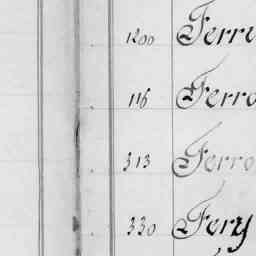 1200 Ferre
116 Ferro
313 Ferro
330 Fery